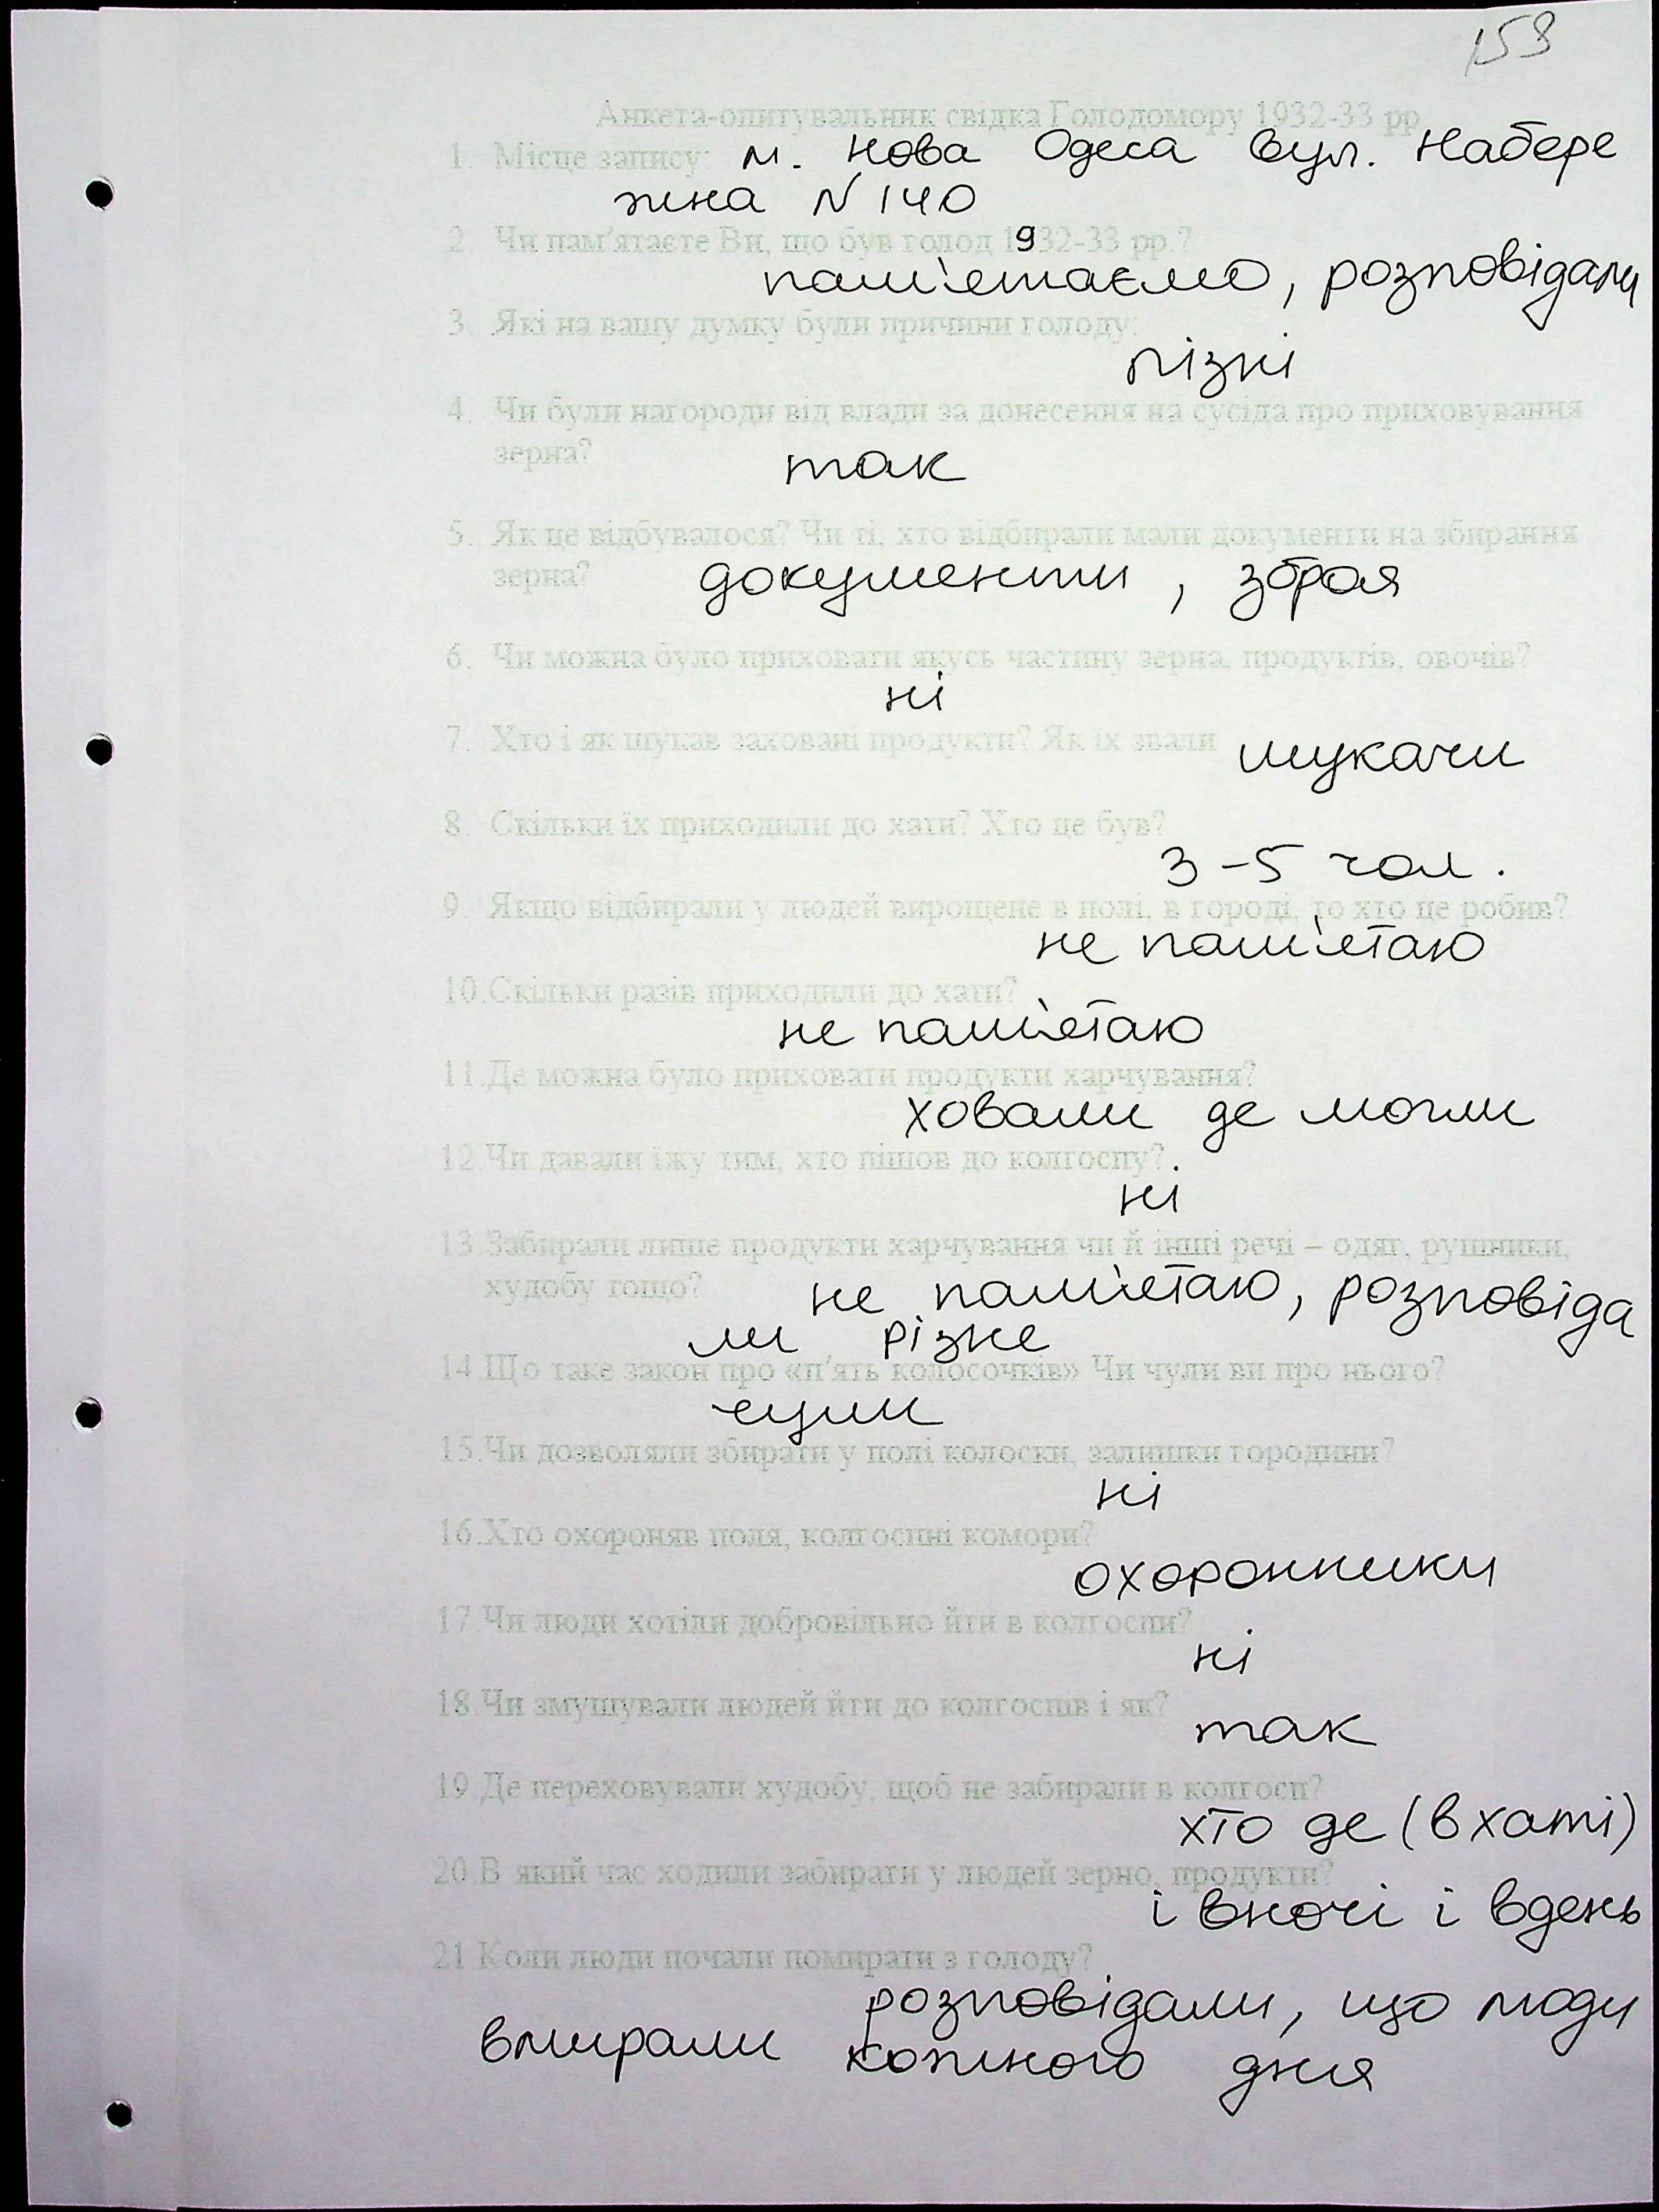 153
Анкета-опитувальник свідка Голодомору 1932-33 рр.
1. Місце запису: м. Нова Одеса вул. Набере
жна N 140
2. Чи пам'ятаєте Ви, що був голод 1932-33 рр.?
пам'ятаємо, розповідали
3. Які на вашу думку були причини голоду:
різні
4. Чи були нагороди від влади за донесення на сусіда про приховування
зерна? так
5. Як це відбувалося? Чи ті, хто відбирали мали документи на збирання
зерна? документи, зброя
6. Чи можна було приховати якусь частину зерна, продуктів, овочів?
ні
7. Хто і як шукав заховані продукти? Як їх звали шукачи
8. Скільки їх приходили до хати? Хто це був?
3-5 чол.
9. Якщо відбирали у людей вирощене в полі, в городі, то хто це робив?
не пам'ятаю
10. Скільки разів приходили до хати?
не пам'ятаю
11. Де можна було приховати продукти харчування?
ховали де могли
12. Чи давали їжу тим, хто пішов до колгоспу?
ні
13. Забирали лише продукти харчування чи й інші речі – одяг, рушники,
худобу тощо? не пам'ятаю, розповіда
ли різне
14 Що таке закон про «п'ять колосочків» Чи чули ви про нього?
чули
15. Чи дозволяли збирати у полі колоски, залишки городини?
ні
16. Хто охороняв поля, колгоспні комори?
охоронники
17. Чи люди хотіли добровільно йти в колгоспи?
ні
18. Чи змушували людей йти до колгоспів і як?
так
19 Де переховували худобу, щоб не забирали в колгосп?
хто де (в хаті)
20 В який час ходили забирати у людей зерно, продукти?
і вночі і вдень
21 Коли люди почали помирати з голоду?
розповідали, що люди
вмирали кожного дня